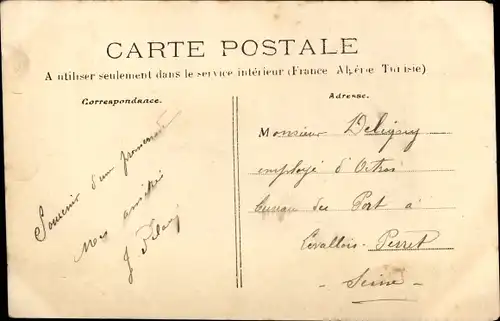 CARTE POSTALE
A utiliser seulement dans le service intérieur (France Algérie Tunisie)
Correspondance.
Souvenir d'un promenade
Mes amitiés
J
Adresse.
Monsieur Deligny
employé d'Octroi
bureau du Port à
Levallois-Perret
- Seine -